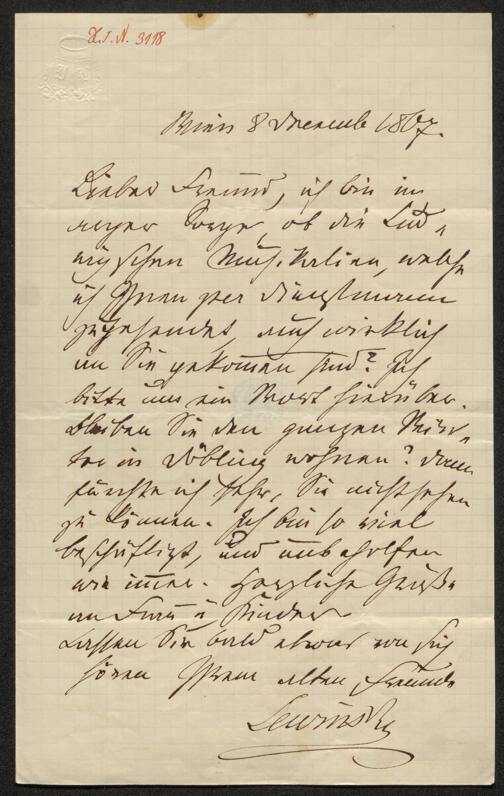 H.I.N. 3118
Wien 8 Dezember 1867.
Lieber Freund, ich bin in
arger Sorge, ob die
Musikalien, welche
ich Ihnen per Dienstmann
zugesendet, auch wirklich
an Sie gekommen sind? Ich
bitte um ein Wort hierüber.
Bleiben Sie den ganzen Win-
ter in Döbling wohnen? Dann
fürchte ich sehr, Sie nicht sehen
zu können. Ich bin so viel
beschäftigt, und unbeholfen
wie immer. Herzliche Grüße
an Frau u Kinder
Lassen Sie bald etwas von sich
hören Ihrem alten Freunde
Lewinsky